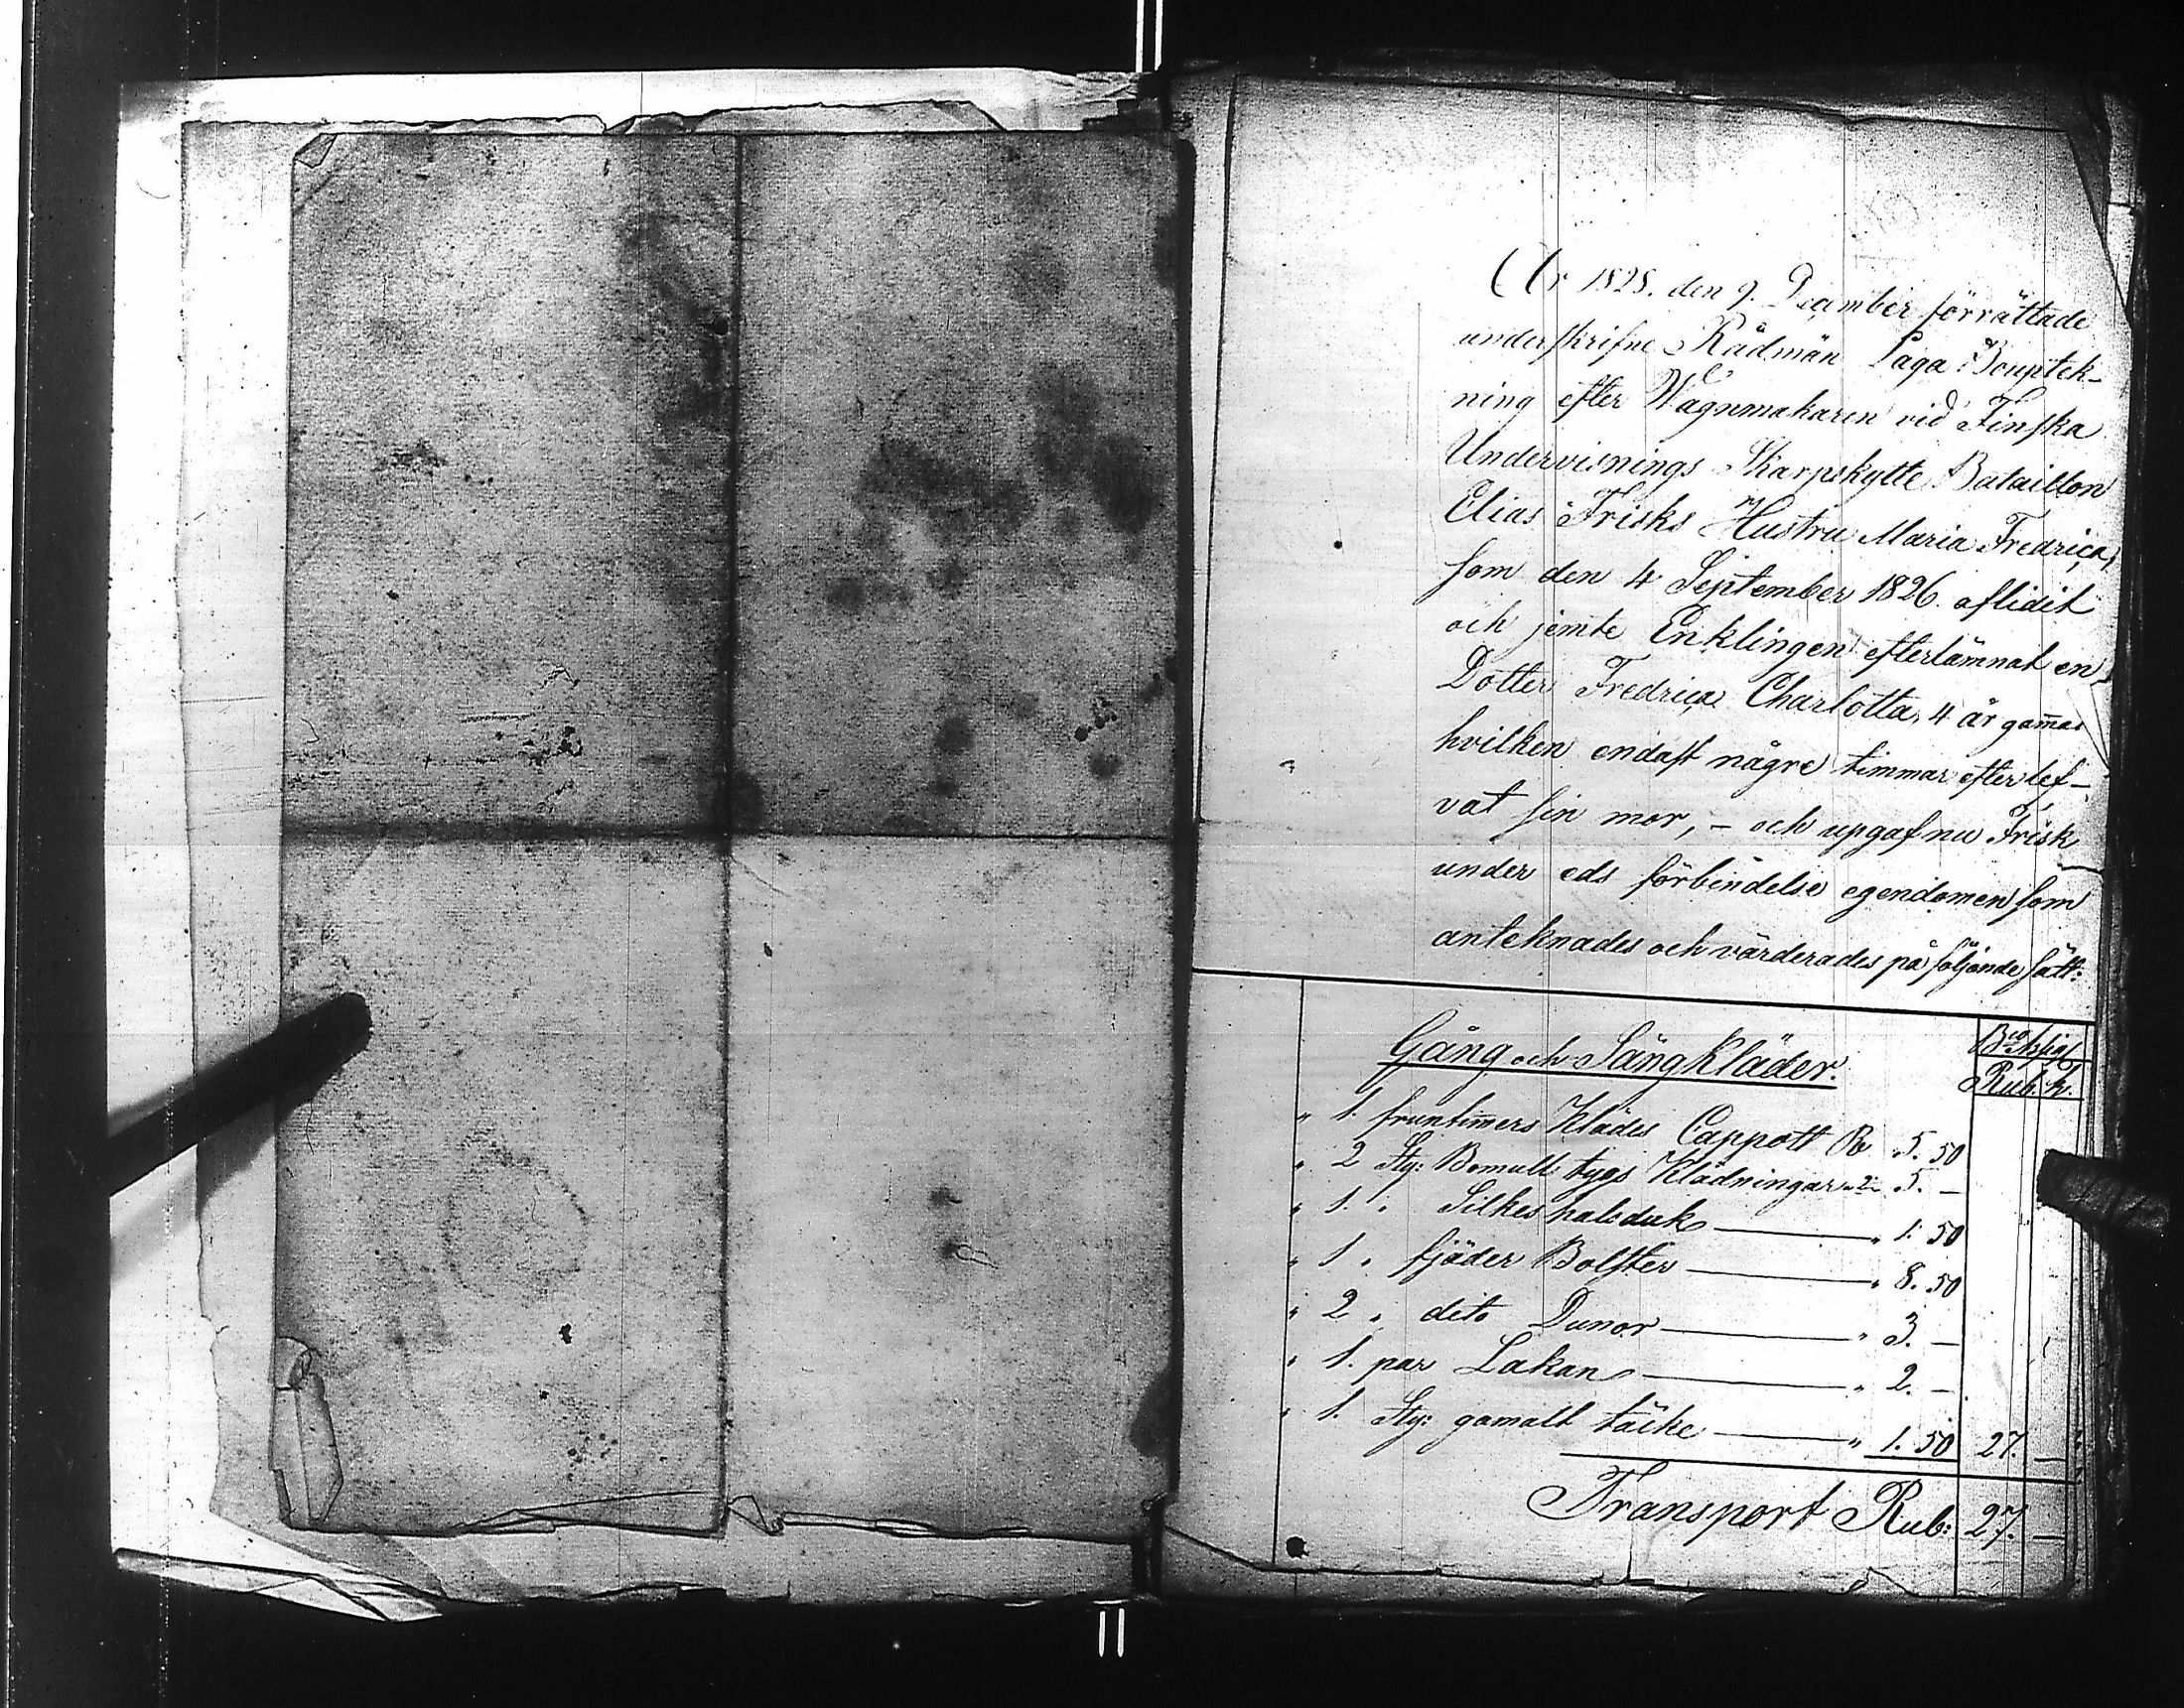 År 1828. den 9. December förrättade
underskrifne Rådmän Laga Bouptek-
ning efter Wagnmakaren vid Finska
Undervisnings Skarpskytte Bataillon
Elias Frisks Hustru Maria Fredrica,
som den 4 September 1826. aflidit
och jemte Enklingen efterlämnat en
Dotter Fredrica Charlotta, 4 år gam̄al
hvilken endast någre timmar efterlef-
vat sin mor, – och upgaf nu Frisk
under eds förbindelse egendomen, som
anteknades och värderades på följande sätt:
Gång och Sängkläder.
Bco Assigs
Rub. k.
" 1. fruntim̄ers Klädes Cappott Rb 5. 50
" 2 Sty: Bomulls tygs Klädningar " 5. –
" 1. " Silkes halsduk " 1. 50
" 1 " fjäder Bolster " 8. 50
" 2 " dito Dunor " 3. –
" 1. par Lakan " 2. –
" 1. Sty: gamalt täcke " 1. 50 27. –
Transport Rub: 27. –